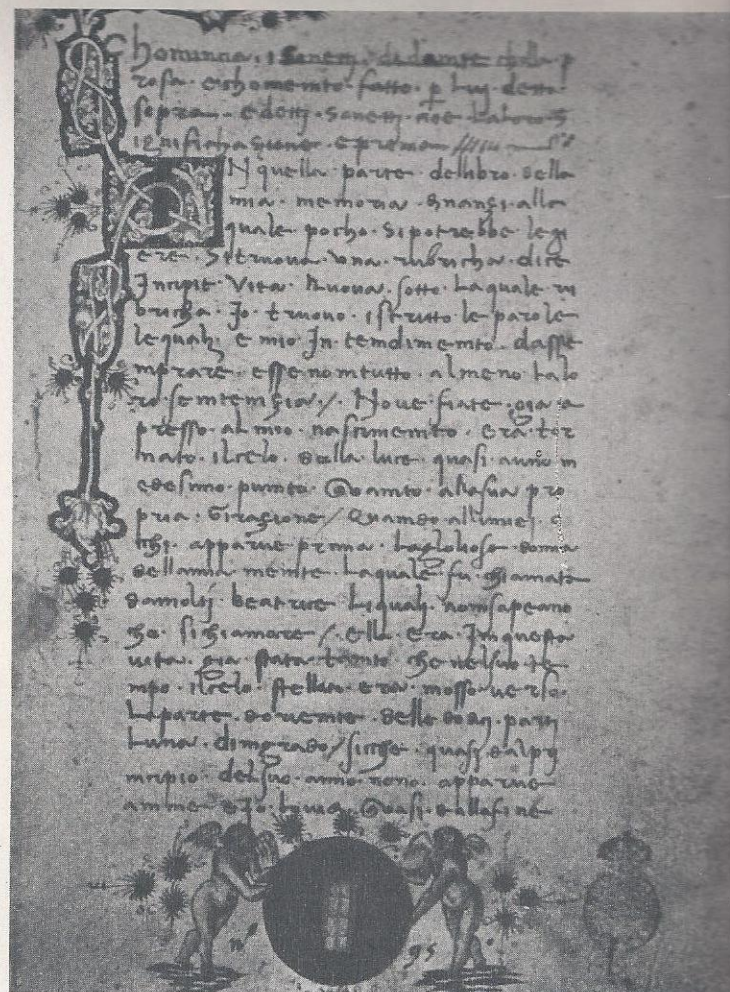 Chomincia · i Sonetti · di dante · della · p
rosa · e chomento · fatto · p luj · detto ·
sopra · e detti · Sonetti · cioe · Laloro S
ignifichazione · e prema
IN quella · parte · dellibro · della
mia · memoria · dnanzi · alla
quale · pocho · Sipotrebbe · legi
ere · Sitruova · Una · rubricha · dice
Incipit · Vita · Nuova · sotto · Laquale · ru
bricha · Jo · truovo · iscritto · le parole
le quali · e mio · Jn tendimemto · dasse
mprare · esse · nomtutto · almeno · lalo
ro · semtemzia / · Nove · fiate · gia · a
presso · al mio · nascimemto · era · tor
nato · ilcelo · della · luce · quasi · aumo m
edesimo · pumto · Quamto · allasua · pro
pria · Girazione / Quamdo · allimiei · o
chi · apparve · prima · Lagloliosa · donna
dellamia · memte · Laquale · fu · chiamata
damolti · beatrice · Liquali · nomsapeano
che · sichiamare / · ella · era · Jmquesta
vita · gia · stata · tamto · che nelsuo · te
mpo · ilcelo · stellato · era · mosso · verso ·
Laparte · doriemte · delle · dodici · parti
Luna · dimgrado / sicche · quasi · dalpri
mcipio · delsuo · anno · nono · apparve
amme · e Jo · lavidi · Quasi · dallafine
n° 95